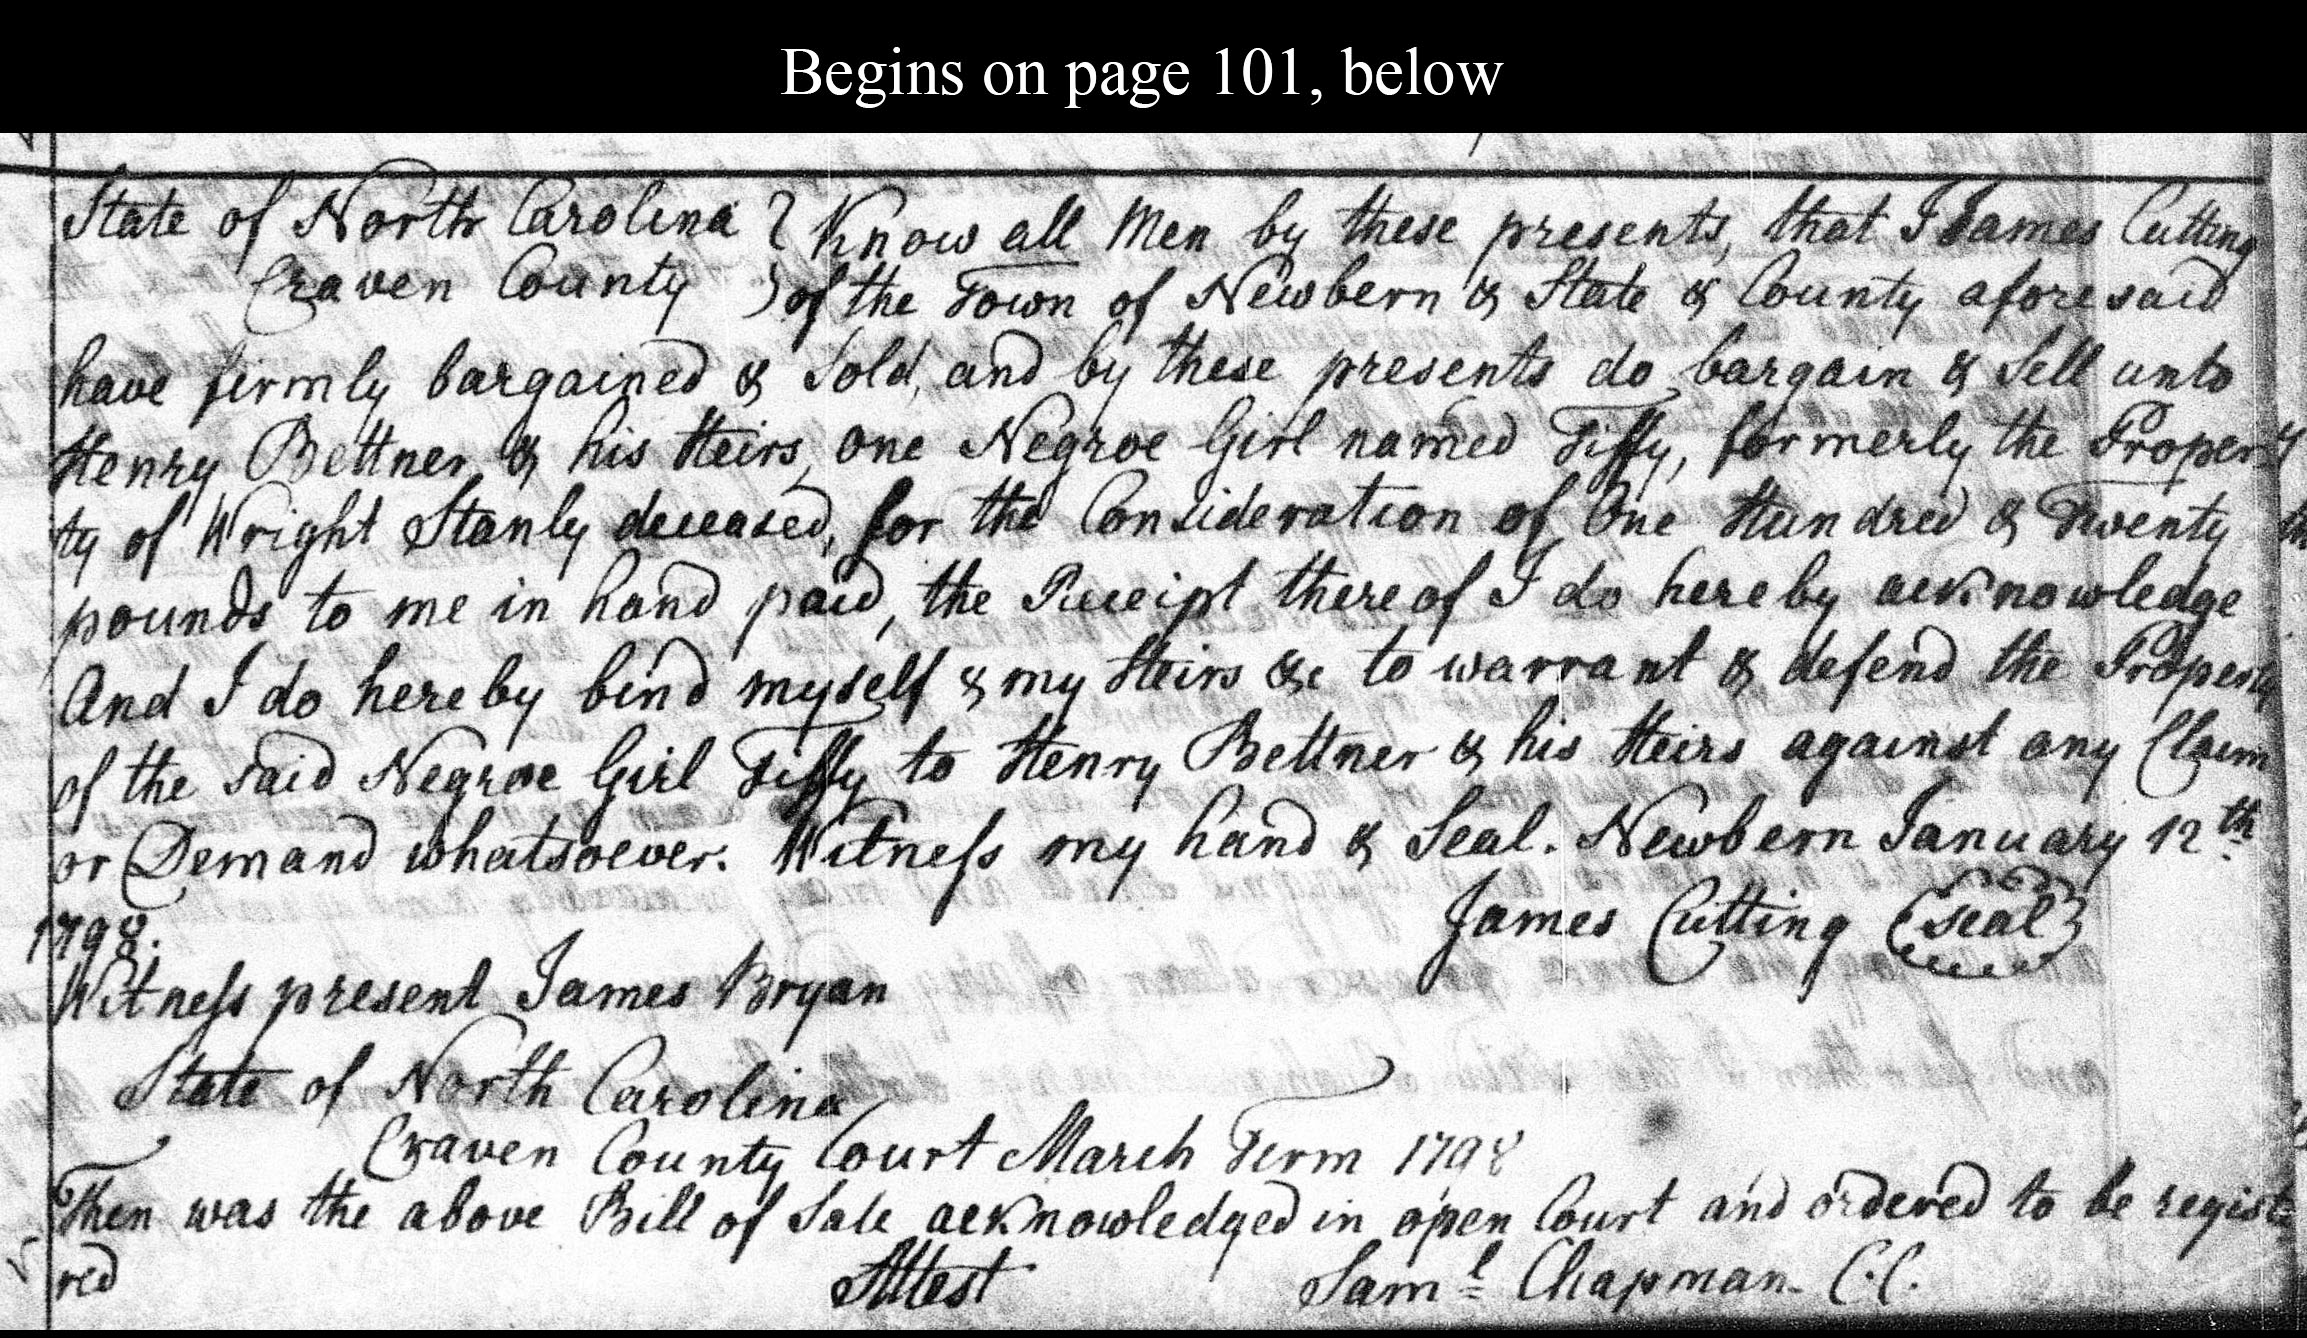 Begins on page 101, below
State of North Carolina } Know all Men by these presents, that I James Cutting
Craven County } of the Town of Newbern & State & County aforesaid
have firmly bargained & Sold, and by these presents do bargain & Sell unto
Henry Bettner & his Heirs, one Negroe Girl named Tiffy, formerly the Proper-
ty of Wright Stanly deceased, for the Consideration of One Hundred & Twenty
pounds to me in hand paid, the Receipt thereof I do hereby acknowledge
And I do hereby bind myself & my Heirs &c to warrant & defend the Property
of the said Negroe Girl Tiffy to Henry Bettner & his Heirs against any Claim
or Demand whatsoever. Witness my hand & Seal. Newbern January 12th
1798.
James Cutting (seal)
Witness present James Bryan
State of North Carolina
Craven County Court March Term 1798
Then was the above Bill of Sale acknowledged in open Court and ordered to be registe
red
Attest Saml Chapman C.C.